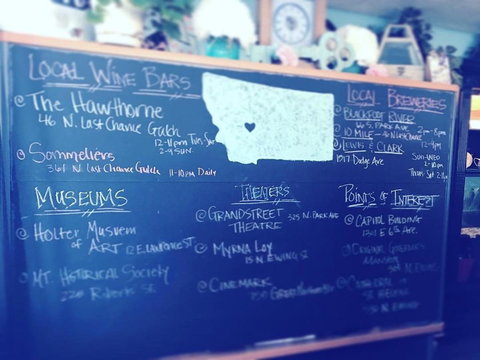 Local Wine Bars
@ The Hawthorne
46 N. Last Chance Gulch
12-10pm Tues-Sat
2-9 SUN
@ Sommeliers
361 N. Last Chance Gulch 11-10pm Daily
Local Breweries
@ Blackfoot River
66 S. Park Ave 2pm-8pm
@ 10 Mile - 48 N Last Chance
12-9pm
@ Lewis & Clark
1517 Dodge Ave
Sun-Wed
2-10pm
Museums
@ Holter Museum
of Art 12 E. Lawrence St
@ Mt. Historical Society
225 Roberts St.
Theaters
@ Grandstreet
Theatre 325 N. Park Ave
@ Myrna Loy
15 N Ewing St
@ Cinemark
750 Great Northern Blvd
Points of Interest
@ Capitol Building
1301 E 6th Ave.
@ Original Governors
Mansion
304 N. Ewing
@ Cathedral of
St. Helena
530 N. Ewing